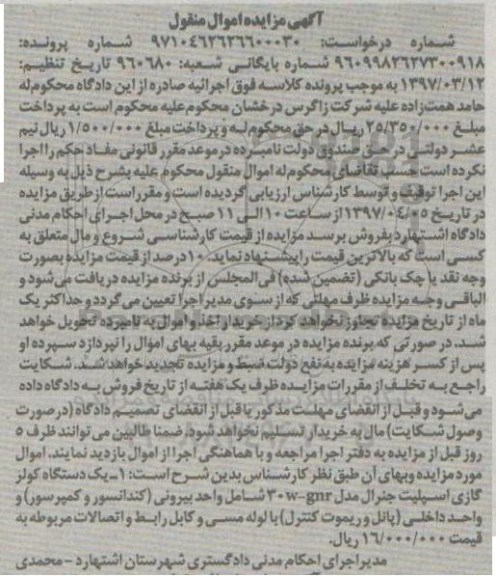 آگهی مزایده اموال منقول
شماره درخواست: ۹۷۱۰۴۶۲۶۲۶۶۰۰۰۳۰ شماره پرونده:
۹۶۰۹۹۸۲۶۲۷۳۰۰۹۱۸ شماره بایگانی شعبه: ۹۶۰۶۸۰ تاریخ تنظیم:
۱۳۹۷/۰۳/۱۲ به موجب پرونده کلاسه فوق اجرائیه صادره از این دادگاه محکوم‌له
حامد همت‌زاده علیه شرکت زاگرس درخشان محکوم علیه محکوم است به پرداخت
مبلغ ۲۵/۳۵۰/۰۰۰ ریال در حق محکوم‌له و پرداخت مبلغ ۱/۵۰۰/۰۰۰ ریال نیم
عشر دولتی در حق صندوق دولت نامبرده در موعد مقرر قانونی مفاد حکم را اجرا
نکرده است حسب تقاضای محکوم‌له اموال منقول محکوم علیه بشرح ذیل به وسیله
این اجرا توقیف و توسط کارشناس ارزیابی گردیده است و مقرر است از طریق مزایده
در تاریخ ۱۳۹۷/۰۴/۰۵ از ساعت ۱۰ الی ۱۱ صبح در محل اجرای احکام مدنی
دادگاه اشتهارد بفروش برسد مزایده از قیمت کارشناسی شروع و مال متعلق به
کسی است که بالاترین قیمت را پیشنهاد نماید. ۱۰ درصد از قیمت مزایده بصورت
وجه نقد یا چک بانکی (تضمین شده) فی‌المجلس از برنده مزایده دریافت می‌شود و
الباقی وجه مزایده ظرف مهلتی که از سوی مدیر اجرا تعیین می‌گردد و حداکثر یک
ماه از تاریخ مزایده تجاوز نخواهد کرد از خریدار اخذ و اموال به نامبرده تحویل خواهد
شد. در صورتی که برنده مزایده در موعد مقرر بقیه بهای اموال را نپردازد سپرده او
پس از کسر هزینه مزایده به نفع دولت ضبط و مزایده تجدید خواهد شد. شکایت
راجع به تخلف از مقررات مزایده ظرف یک هفته از تاریخ فروش به دادگاه داده
می‌شود و قبل از انقضای مهلت مذکور یا قبل از انقضای تصمیم دادگاه (در صورت
وصول شکایت) مال به خریدار تسلیم نخواهد شود ضمنا طالبین می‌توانند ظرف ۵
روز قبل از مزایده به دفتر اجرا مراجعه و با هماهنگی اجرا از اموال بازدید نمایند. اموال
مورد مزایده و بهای آن طبق نظر کارشناس بدین شرح است: ۱- یک دستگاه کولر
گازی اسپلیت جنرال مدل ۳۰w-gnr شامل واحد بیرونی (کندانسور و کمپرسور) و
واحد داخلی (پانل و ریموت کنترل) با لوله مسی و کابل رابط و اتصالات مربوطه به
قیمت ۱۶/۰۰۰/۰۰۰ ریال.
مدیر اجرای احکام مدنی دادگستری شهرستان اشتهارد - محمدی